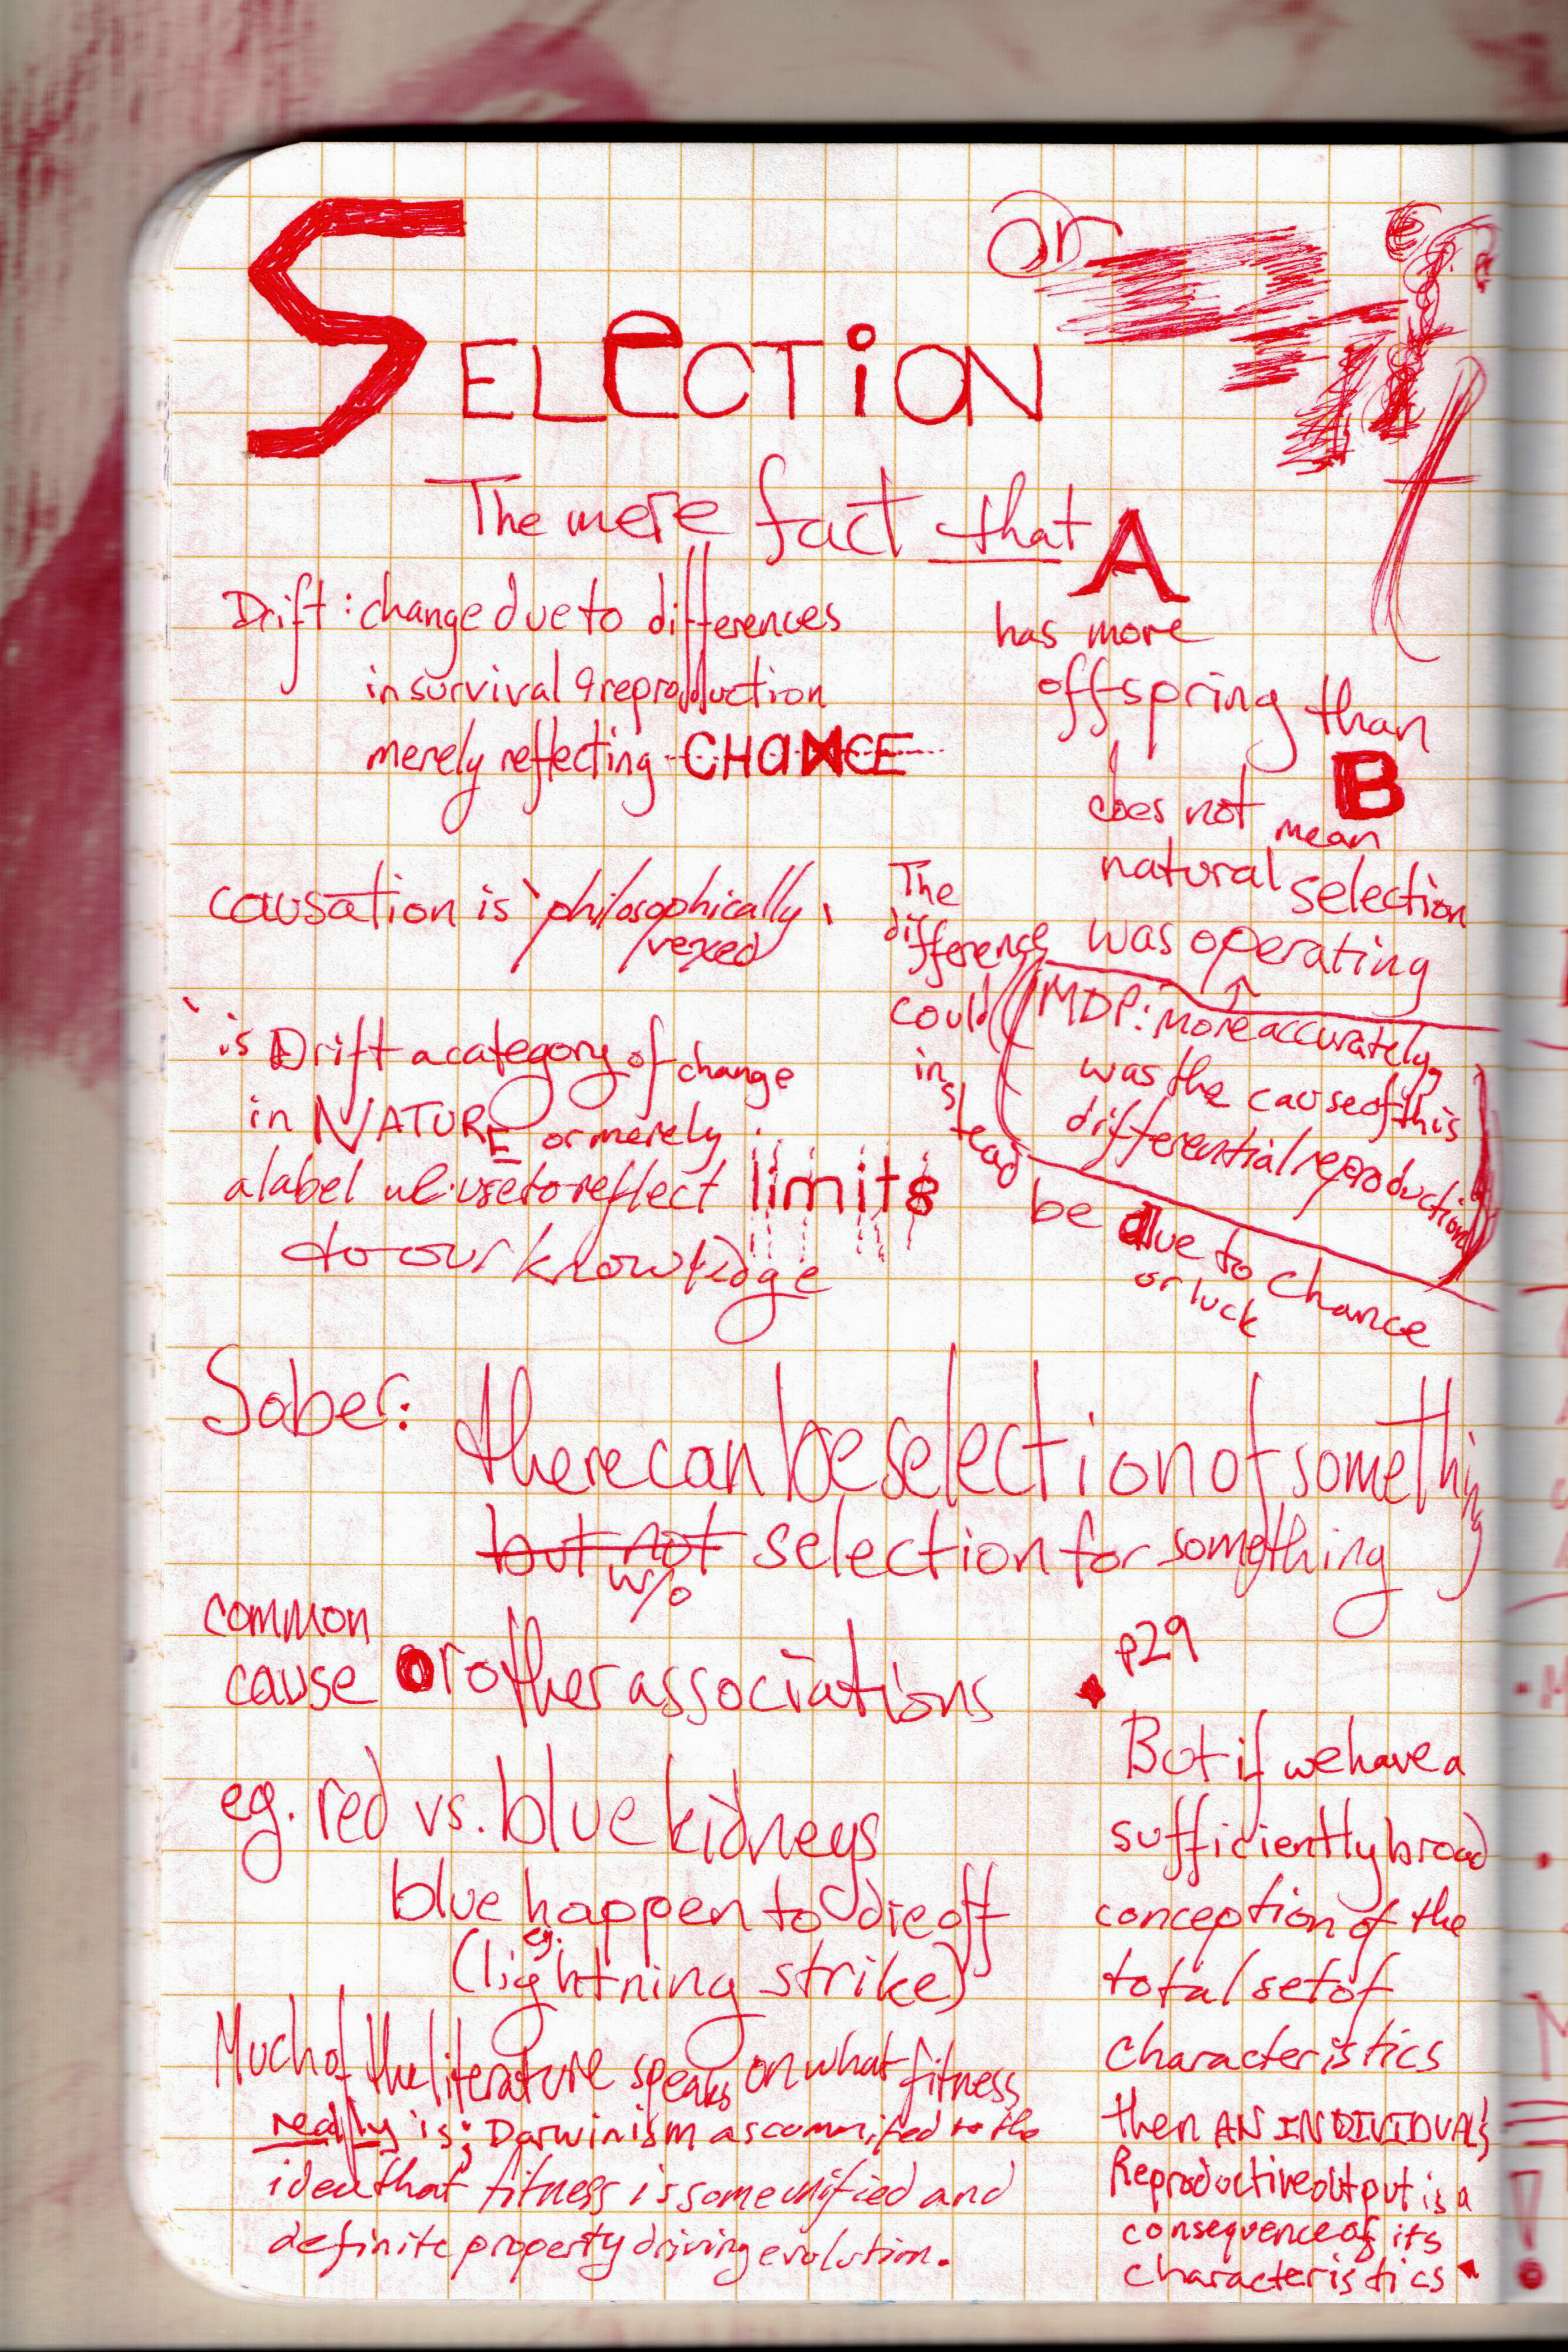 SELECTION
or
Drift
The mere fact that A
has more
offspring than
B
does not mean
natural selection
was operating
MDP: more accurately,
was the cause of this
differential reproduction
The
difference
could
in
stead
be due to chance
or luck
Drift: change due to differences
in survival & reproduction
merely reflecting CHANCE
causation is 'philosophically
vexed'
'is Drift a category of change
in NATURE or merely
a label we use to reflect limits
to our knowledge
Sober: there can be selection of something
but not selection for something
w/o
common
cause or other associations
eg. red vs. blue kidneys
blue happen to die off
(eg. lightning strike)
Much of the literature speaks on what fitness
really is; Darwinism as committed to the
idea that fitness is some unified and
definite property driving evolution.
p29
But if we have a
sufficiently broad
conception of the
total set of
characteristics
then AN INDIVIDUAL's
Reproductive output is a
consequence of its
characteristics